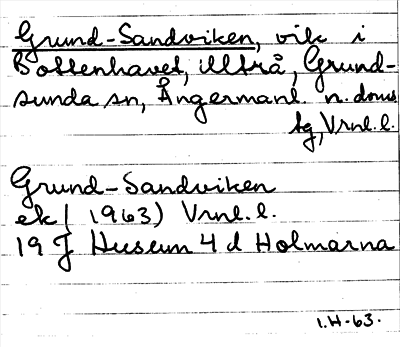 Grund-Sandviken, vik i
Bottenhavet, Ultrå, Grund-
sunda sn, Ångermanl. n. doms
tg, Vrnl. l.
Grund-Sandviken
ek ( 1963) Vrnl. l.
19 J Husum 4 d Holmarna
1.H-63.